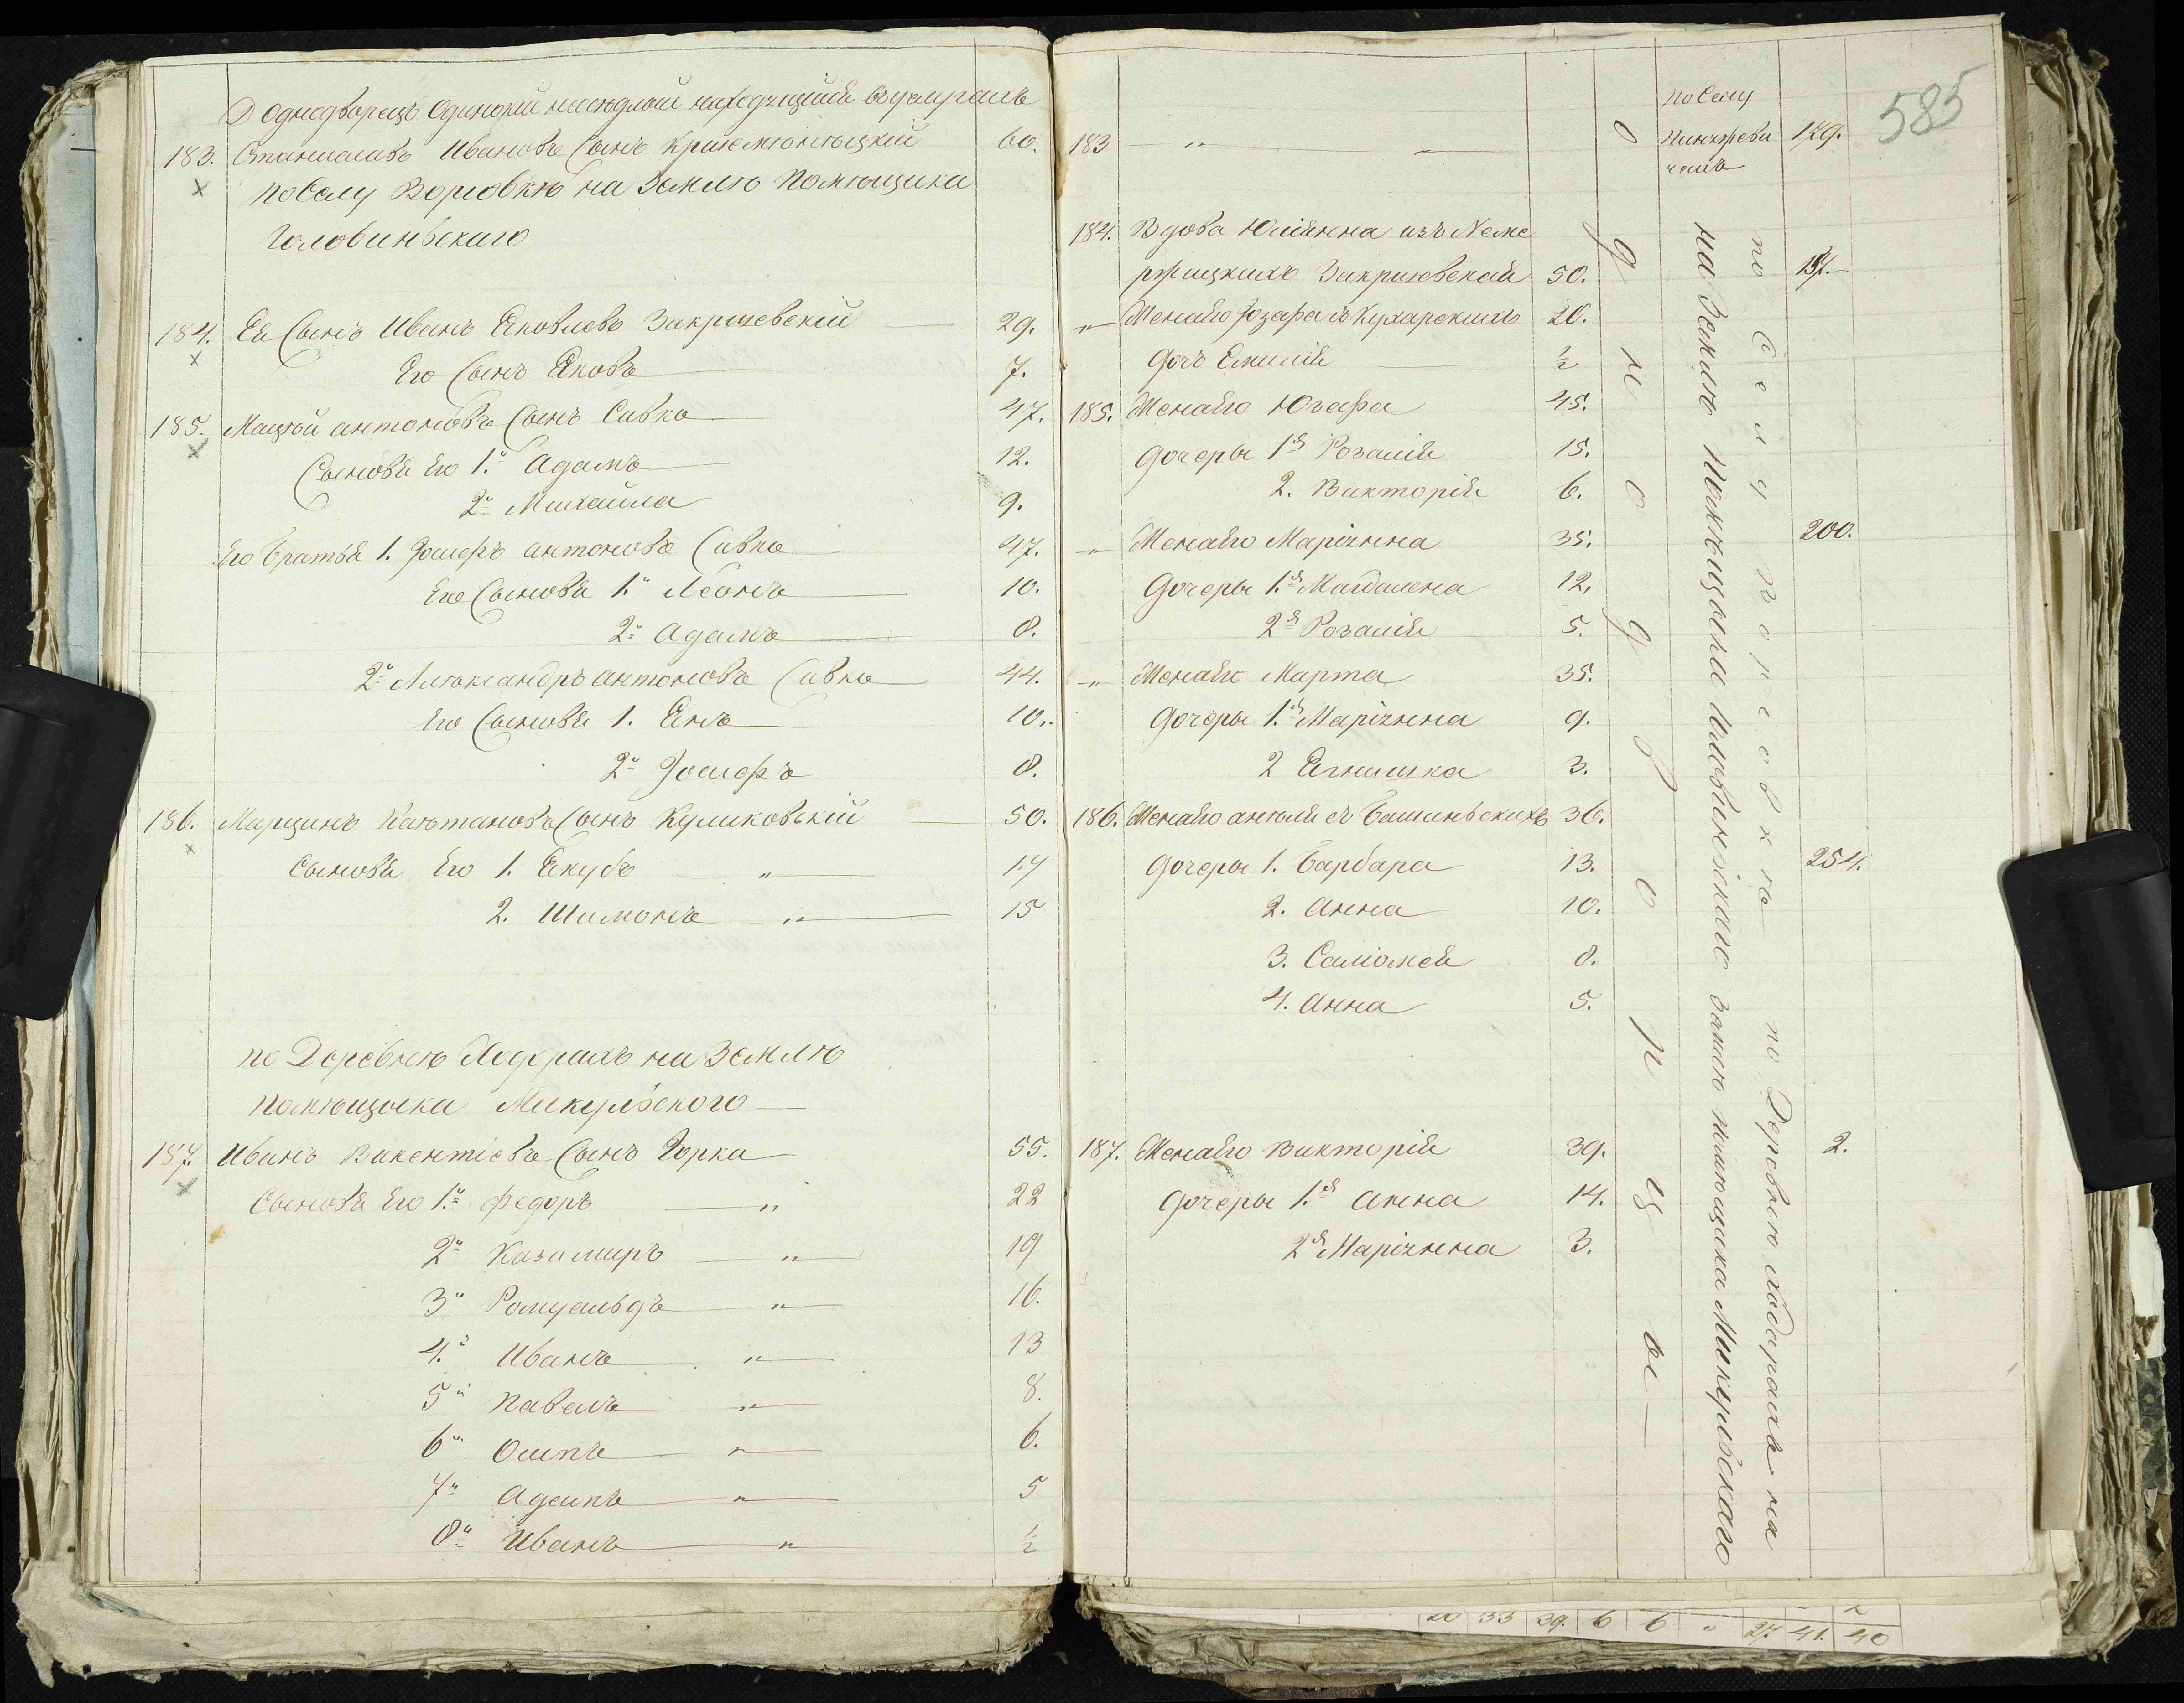 Однодворецъ Одинокій находящійся
183. Станиславъ Ивановъ Сынъ 60.
по Селу Воровкѣ на Землѣ Помѣщика
Головинскаго
184. Ея Сынъ Иванъ Яковлевъ Закржевскій 29.
Его Сынъ Яковъ 7.
185. Мацѣй антоновъ Сынъ Савка 47.
Сыновья Его 1.й Адамъ 12.
2й Михайла 9.
Его братья 1. Іозефъ антоновъ Савка 47.
Его Сыновья 1.й Леонъ 10.
2й Адамъ 8.
2й Александръ антоновъ Савка 44.
Его Сыновья 1. Янъ 10.
2й Іозефъ 8.
186. Марцинъ Каэтановъ Сынъ Куликовскій 50.
Сыновья Его 1. Якубъ " 17
2. Шимонъ " 15
по Деревнѣ на Землѣ
помѣщика Микульского
187. Иванъ Викентіевъ Сынъ Горка 55.
Сыновья Его 1й Федоръ " 22
2й Казимиръ " 19
3й Ромуальдъ " 16.
4й Иванъ " 13
5й Павелъ " 8.
6й Осипъ " 6.
7й Адамъ " 5
8й Иванъ " ½
585
по Селу
179.
183 "
184. Вдова Юліянна изъ Неме
ржицкихъ Закржевская 50.
" Жена Его Іозефа съ Кухарскихъ 20.
дочь Емилія ½
185. Жена Его Юзефа 45.
дочеры 1я Розалія 15.
2. Викторія 6.
" Жена Его Маріянна 35. 200.
дочеры 1.я Магдалена 12.
2я Розалія 5.
" Жена Его Марта 35.
дочеры 1.я Маріянна 9.
2 Ягнишка 3.
186. Жена Его анеля съ 36.
дочеры 1. Барбара 13. 254.
2. Анна 10.
3. Саломея 8.
4. Анна 5.
187. Жена Его Викторія 39. 2.
дочеры 1.я Анна 14.
2я Маріянна 3.
о д н о д в о р ц ы
по Селу Воровкѣ
на Землѣ Помѣщика Головинскаго
по Деревнѣ на
Землѣ помѣщика Микульскаго
20 33 39. 6 6 " 27. 41. 40